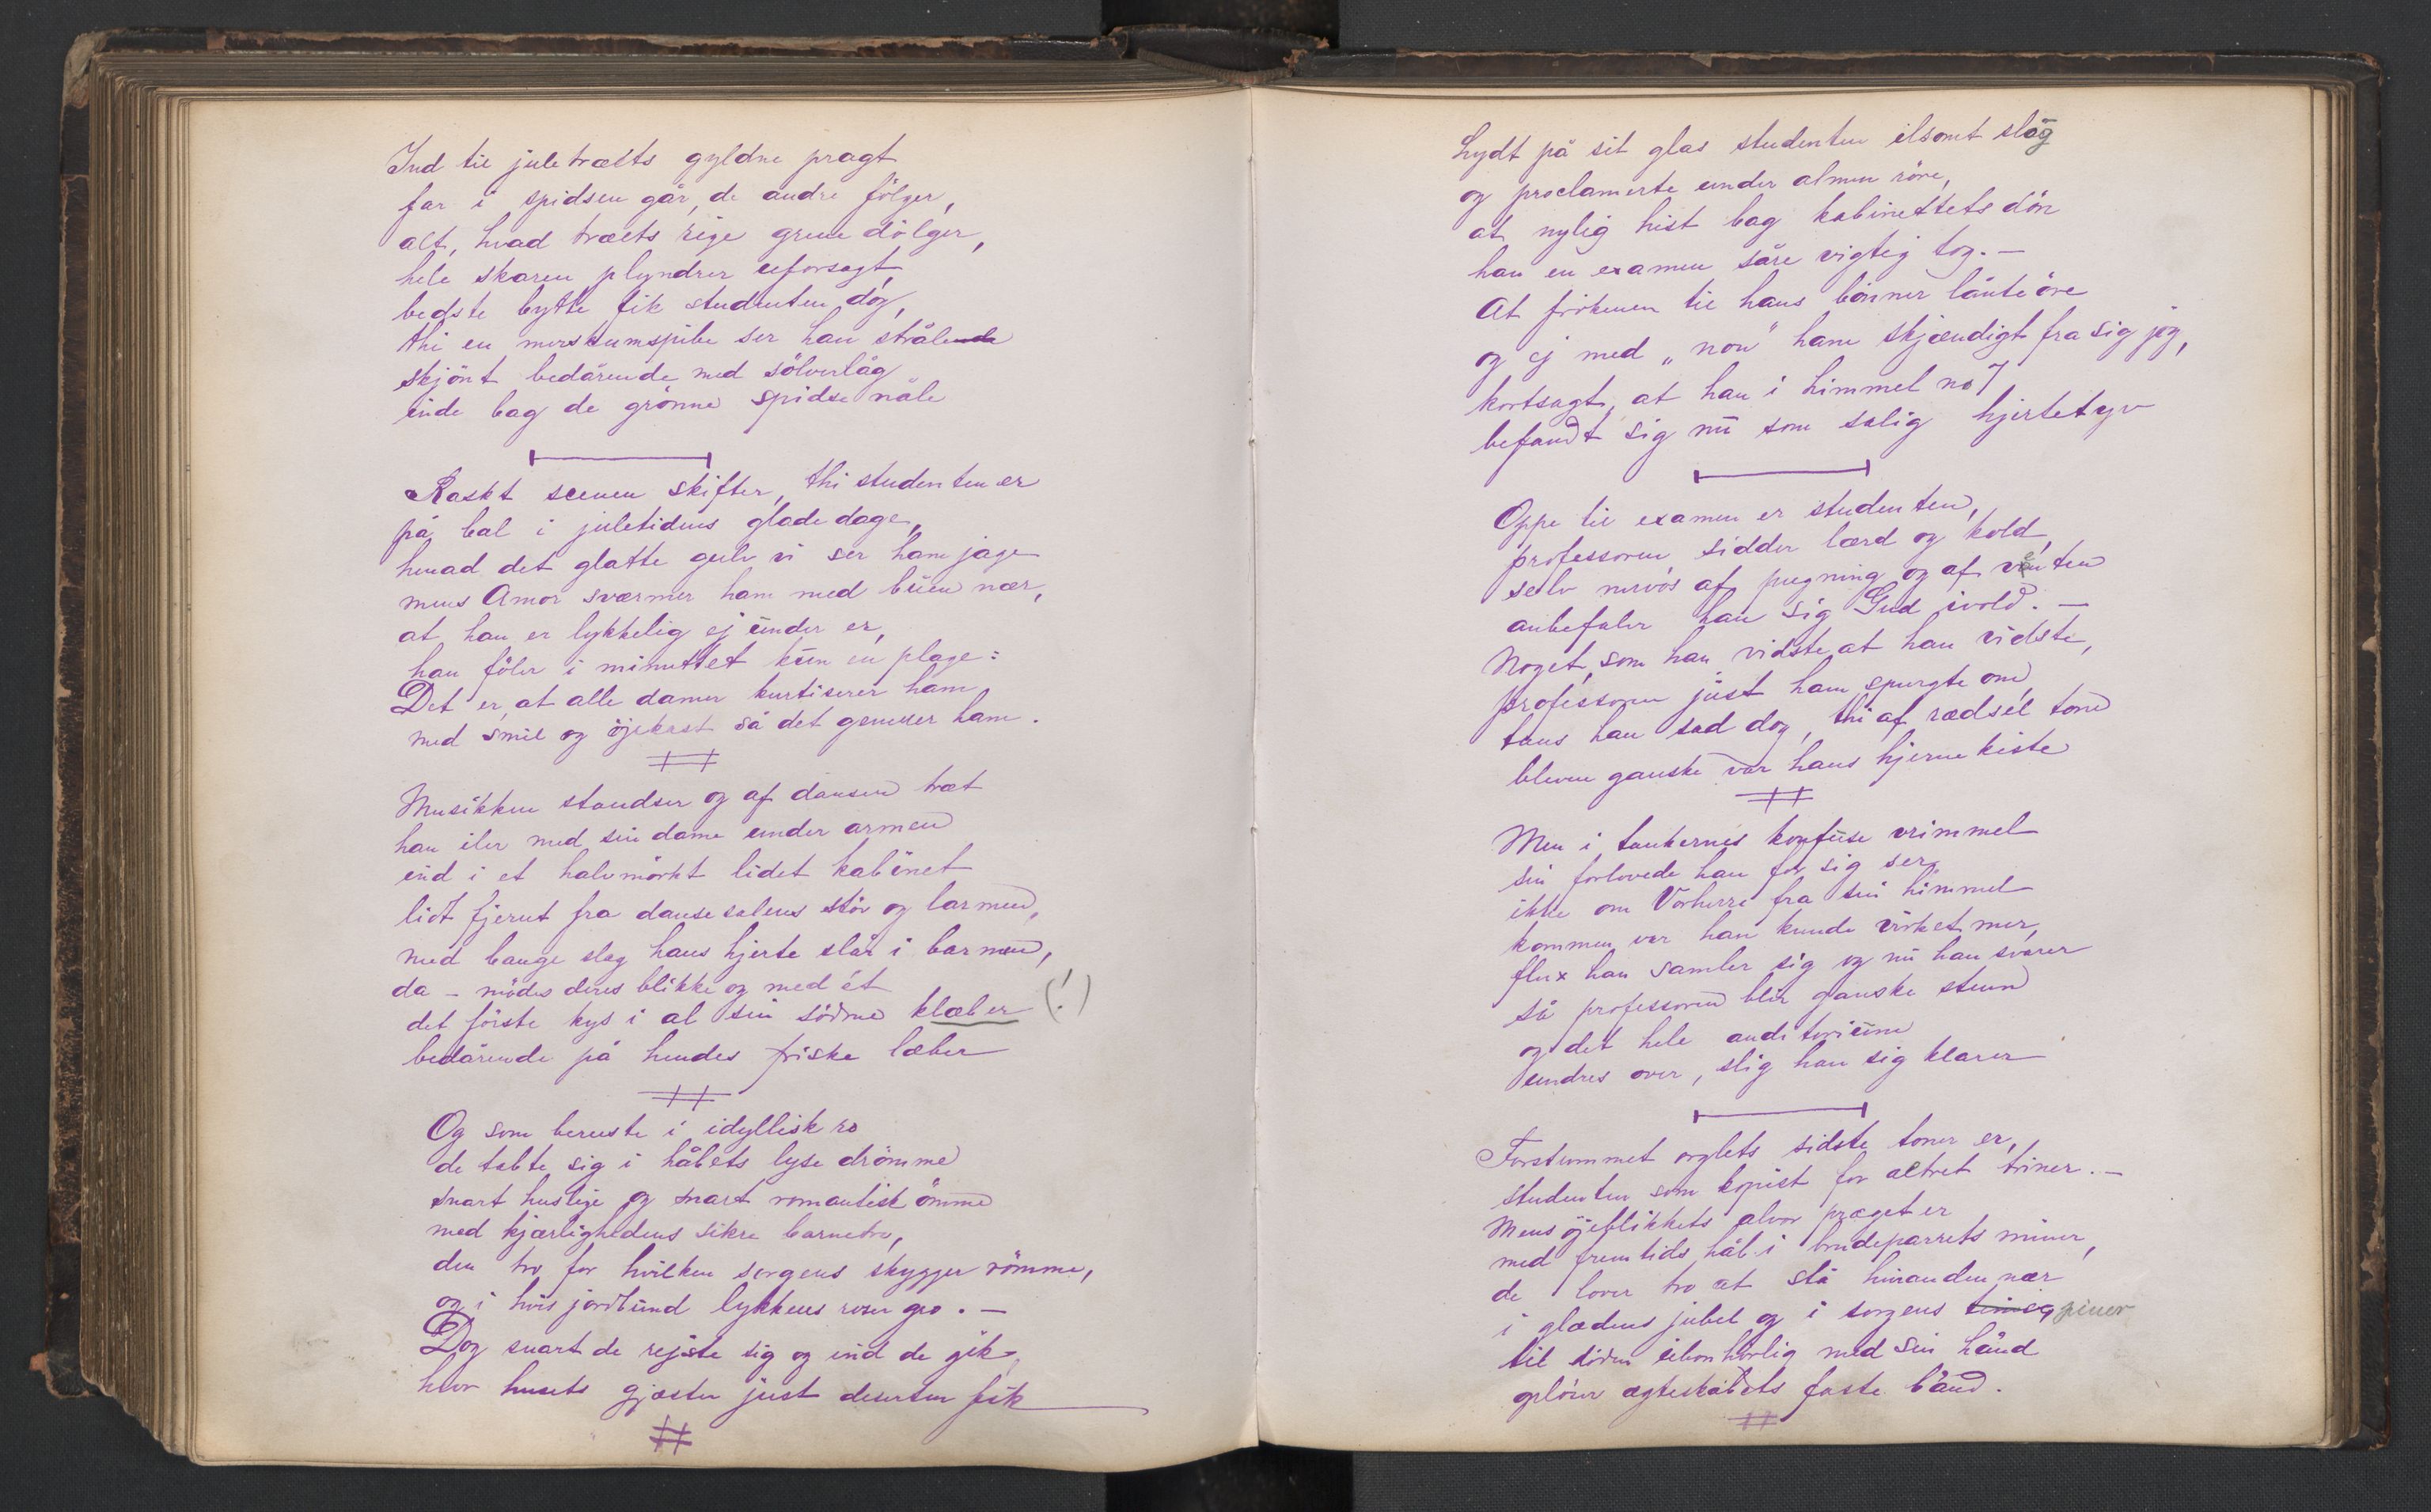 Ind til juletræets gyldne pragt
far i spidsen går, de andre følger,
alt, hvad træets rige grene dölger,
hele skaren plyndrer uforsagt,
bedste bytte fik studenten dog,
thi en merskumspibe ser han stråle
skjönt bedårende med sölverlåg
inde bag de grönne spidse nåle
Raskt scenen skifter, thi studenten er
på bal i juletidens glade dage,
henad det glatte gulv vi ser ham jage
mens Amor sværmer ham med buen nær,
at han er lykkelig ej under er,
han föler i minuttet kun en plage:
Det er, at alle damer kurtiserer ham
med smil og öjekast så det generer ham.
Musikken standser og af dansen træt
han iler med sin dame under armen
ind i et halvmörkt lidet kabinet
lidt fjernt fra dansesalens stöv og larmen,
med bange slag hans hjerte slår i barmen,
da – mödes deres blikke og med ét
det förste kys i al sin södme klæber (!)
bedårende på hendes friske læber
Og som beruste i idyllisk ro
de tabte sig i håbets lyse drömme
snart huslige og snart romantisk ömme
med kjærlighedens sikre barnetro,
den tro for hvilken sorgens skygger römme,
og i hvis jordbund lykkens roser gro. –
Dog snart de rejste sig og ind de gik
hvor husets gjæster just deserten fik
Lydt på sit glas studenten ilsomt slog
og proclamerte under almen röre,
at nylig hist bag kabinettets dör
han en examen såre vigtig tog. –
At frökenen til hans bönner lånte öre
og ej med „non" ham skjændigt fra sig jog,
kortsagt, at han i himmel no 7
befandt sig nu som salig hjertetyv
Oppe til examen er studenten,
professoren sidder lærd og kold,
selv nervös af pugning og af venten
anbefaler han sig Gud ivold. –
Noget, som han vidste at han vidste,
professoren just ham spurgte om
taus han sad dog, thi af rædsel tom
bleven ganske var hans hjernekiste
Men i tankernes konfuse vrimmel
sin forlovede han for sig ser,
ikke om Vorherre fra sin himmel
kommen var han kunde virket mer,
flux han samler sig og nu han svarer
så professoren blir ganske stum
og det hele auditorium
undres over, slig han sig klarer
Forstummet orglets sidste toner er,
studenten som kopist for altret triner. –
Mens öjeblikkets alvor præget er
med fremtids håb i brudeparrets miner,
de lover tro at stå hinanden nær
i glædens jubel og i sorgens piner
til döden ubönhörlig med sin hånd
oplöser ægteskabets faste bånd.